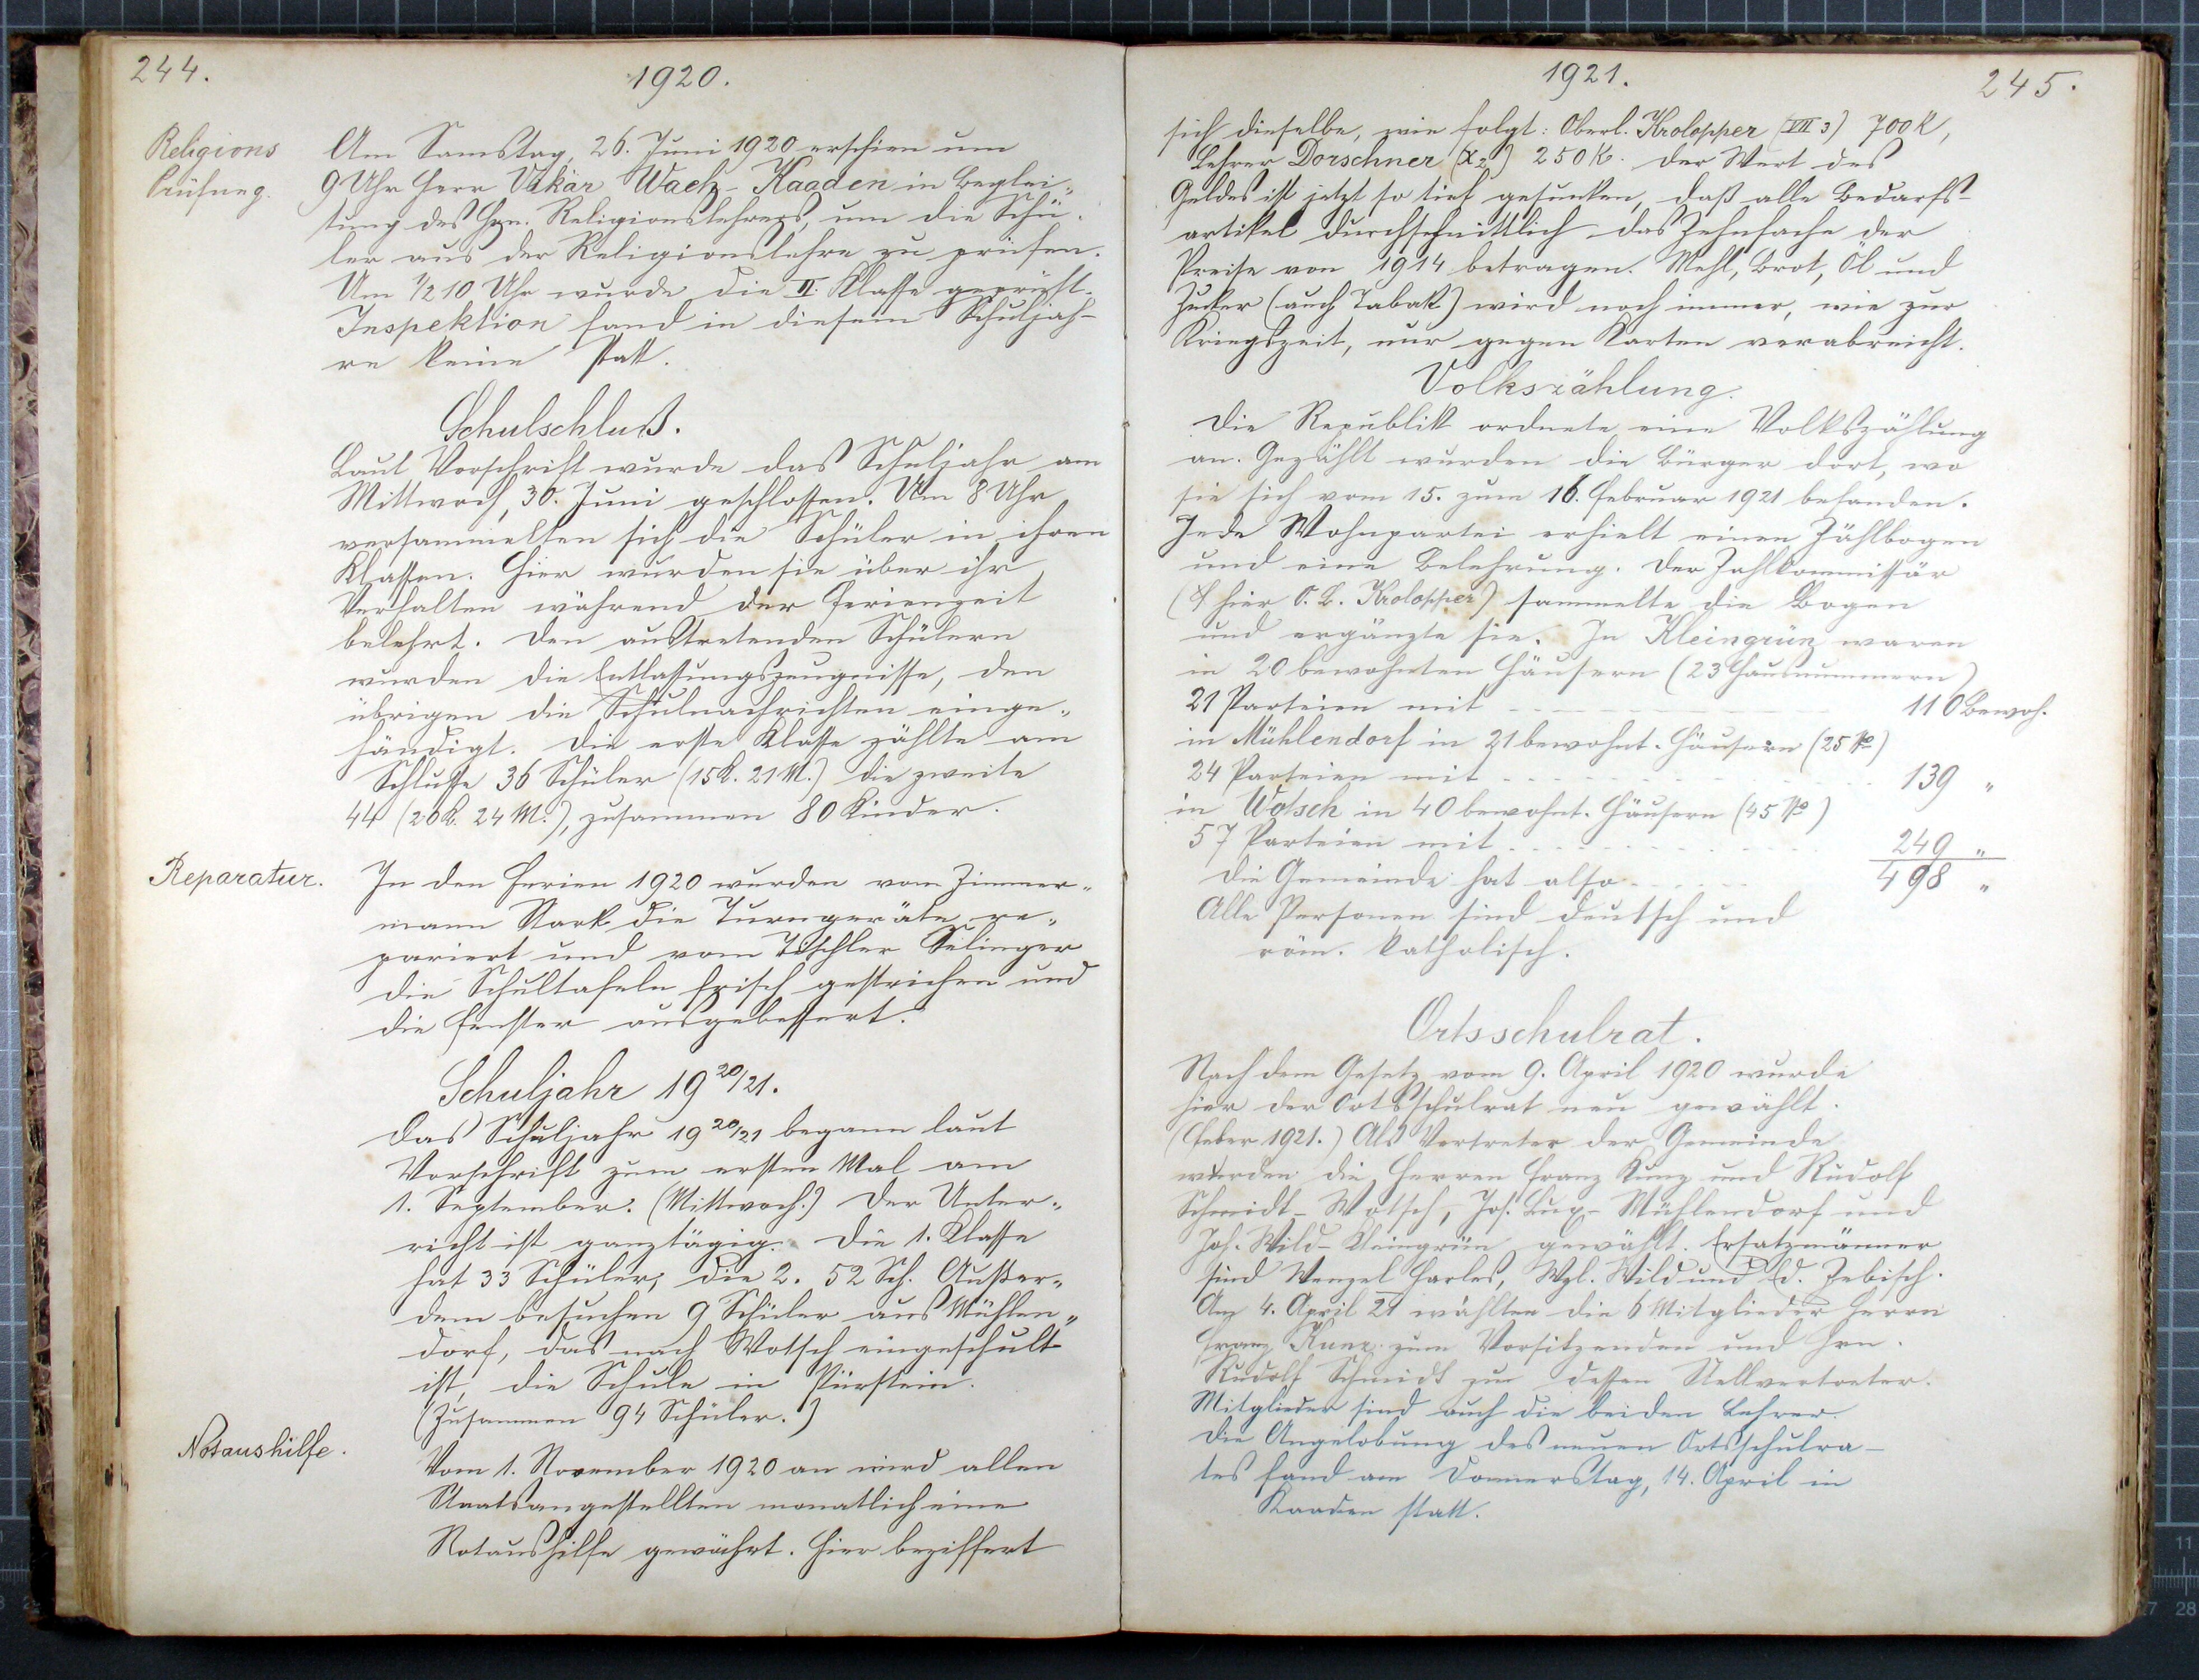 244.
1920.
Religions
Prüfung.
Am Samstag, 26. Juni 1920 erschien um
9 Uhr Herr Vikär Wach-Kaaden in Beglei-
tung des Hrn. Religionslehrers, um die Schü-
ler aus der Religionslehre zu prüfen.
Um ½10 Uhr wurde die II. Klasse geprüft.
Inspektion fand in diesem Schuljah-
re keine statt.
Schulschluß.
Laut Vorschrift wurde das Schuljahr am
Mittwoch, 30. Juni geschlossen. Um 8 Uhr
versammelten sich die Schüler in ihren
Klassen. Hier wurden sie über ihr
Verhalten während der Ferienzeit
belehrt. Den austretenden Schülern
wurden die Entlassungszeugnisse, den
übrigen die Schulnachrichten einge-
händigt. Die erste Klasse zählte am
Schlusse 36 Schüler (15 K. 21 M.) die zweite
44 (20 K. 24 M.), zusammen 80 Kinder.
Reparatur.
In den Ferien 1920 wurden vom Zimmer-
mann Stark die Turngeräte re-
pariert und vom Tischler Selinger
die Schultafeln frisch gestrichen und
die Fenster ausgebessert.
Schuljahr 1920/21.
Das Schuljahr 1920/21 begann laut
Vorschrift zum ersten Mal am
1. September. (Mittwoch.) Der Unter-
richt ist ganztägig. Die 1. Klasse
hat 33 Schüler, die 2. 52 Sch. Außer-
dem besuchen 9 Schüler aus Mühlen-
dorf, das nach Wotsch eingeschult
ist, die Schule in Pürstein.
(Zusammen 94 Schüler.)
Notaushilfe.
Vom 1. November 1920 an wird allen
Staatsangestellten monatlich eine
Notaushilfe gewährt. Hier beziffert
1921.
245.
sich dieselbe, wie folgt: Oberl. Krolopper (VII 3) 700 K,
Lehrer Dorschner (X 2) 250 K. Der Wert des
Geldes ist jetzt so tief gesunken, daß alle Bedarfs-
artikel durchschnittlich das Zehnfache der
Preise von 1914 betragen. Mehl, Brot, Öl und
Zucker (auch Tabak) wird noch immer, wie zur
Kriegszeit, nur gegen Karten verabreicht.
Volkszählung.
Die Republik ordnete eine Volkszählung
an. Gezählt wurden die Bürger dort, wo
sie sich vom 15. zum 16. Februar 1921 befanden.
Jede Wohnpartei erhielt einen Zählbogen
und eine Belehrung. Der Zahlkommissär
(hier O. L. Krolopper) sammelte die Bogen
und ergänzte sie. In Kleingrün waren
in 20 bewohnten Häusern (23 Hausnummern)
21 Parteien mit 110 Bewoh.
in Mühlendorf in 21 bewohnt. Häusern (25 No)
24 Parteien mit 139 "
in Wotsch in 40 bewohnt. Häusern (45 No)
57 Parteien mit 249 "
Die Gemeinde hat also 498 "
Alle Personen sind deutsch und
röm. katholisch.
Ortsschulrat.
Nach dem Gesetz vom 9. April 1920 wurde
hier der Ortsschulrat neu gewählt.
(Feber 1921.) Als Vertreter der Gemeinde
wurden die Herren Franz Kunz und Rudolf
Schmidt-Wotsch, Jos. Lux-Mühlendorf und
Joh. Wild-Kleingrün gewählt. Ersatzmänner
sind Wenzel Harles, Wzl. Wild und Ed. Zebisch.
Am 4. April 21 wählten die 6 Mitglieder Herrn
Franz Kunz zum Vorsitzenden und Hrn.
Rudolf Schmidt zu dessen Stellvertreter.
Mitglieder sind auch die beiden Lehrer.
Die Angelobung des neuen Ortsschulra-
tes fand am Donnerstag, 14. April in
Kaaden statt.
11
27 28